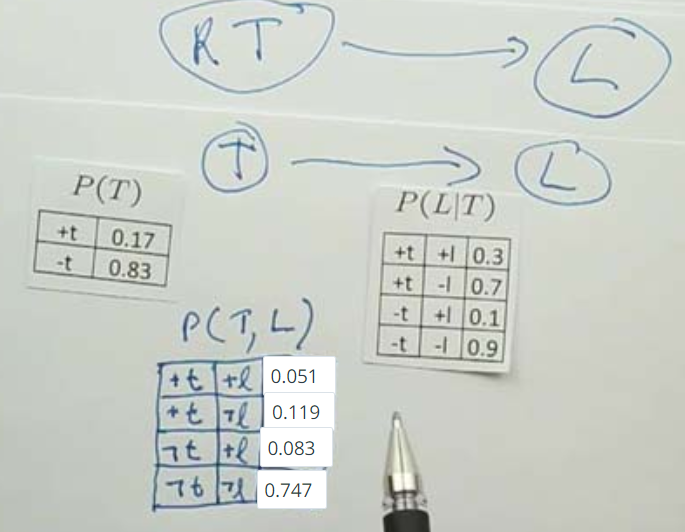 R T L
T L
P(T)
+t 0.17
-t 0.83
P(L|T)
+t +l 0.3
+t -l 0.7
-t +l 0.1
-t -l 0.9
P(T, L)
+t +l 0.051
+t ¬l 0.119
¬t +l 0.083
¬t ¬l 0.747